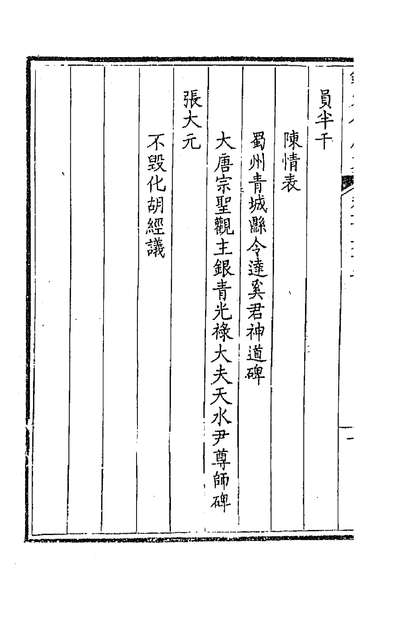 員半千
陳情表
蜀州青城縣令達奚君神道碑
大唐宗聖觀主銀青光祿大夫天水尹尊師碑
張大元
不毀化胡經議